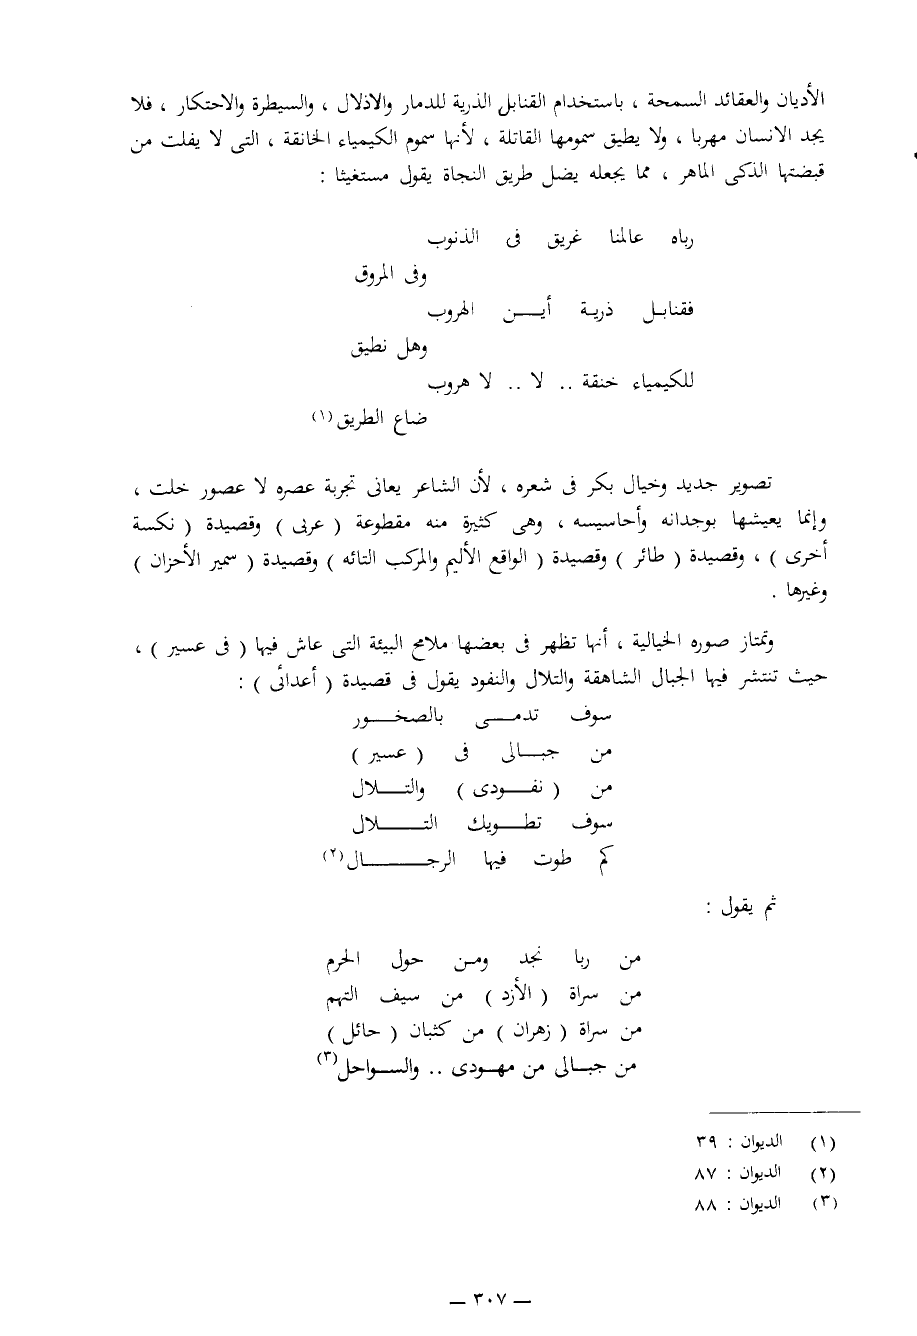 الأديان والعقائد السمحة ، باستخدام القنابل الذرية للدمار والاذلال ، والسيطرة والاحتكار ، فلا
يجد الانسان مهربا ، ولا يطيق سمومها القاتلة ، لأنها سموم الكيمياء الخانقة ، التى لا يفلت من
قبضتها الذكى الماهر ، مما يجعله يضل طريق النجاة يقول مستغيثا :
رباه عالمنا غريق فى الذنوب
وفى المروق
فقنابل ذرية أيـــن الهروب
وهل نطيق
للكيمياء خنقة .. لا .. لا هروب
ضاع الطريق(١)
تصوير جديد وخيال بكر فى شعره ، لأن الشاعر يعانى تجربة عصره لا عصور خلت ،
وإنما يعيشها بوجدانه وأحاسيسه ، وهى كثيرة منه مقطوعة ( عربى ) وقصيدة ( نكسة
أخرى ) ، وقصيدة ( طائر ) وقصيدة ( الواقع الأليم والمركب التائه ) وقصيدة ( سمير الأحزان )
وغيرها .
وتمتاز صوره الخيالية ، أنها تظهر فى بعضها ملامح البيئة التى عاش فيها ( فى عسير ) ،
حيث تنتشر فيها الجبال الشاهقة والتلال والنفود يقول فى قصيدة ( أعدائى ) :
سوف تدمـــى بالصخـــور
من جبـــالى فى ( عسير )
من ( نفـــودى ) والتـــلال
سوف تطـــويك التـــلال
كم طوت فيها الرجـــال(٢)
ثم يقول :
من ربا نجد ومن حول الحرم
من سراة ( الأزد ) من سيف التهم
من سراة ( زهران ) من كثبان ( حائل )
من جبـالى من مهـودى .. والسـواحل(٣)
(١) الديوان : ٣٩
(٢) الديوان : ٨٧
(٣) الديوان : ٨٨
— ٣٠٧ —